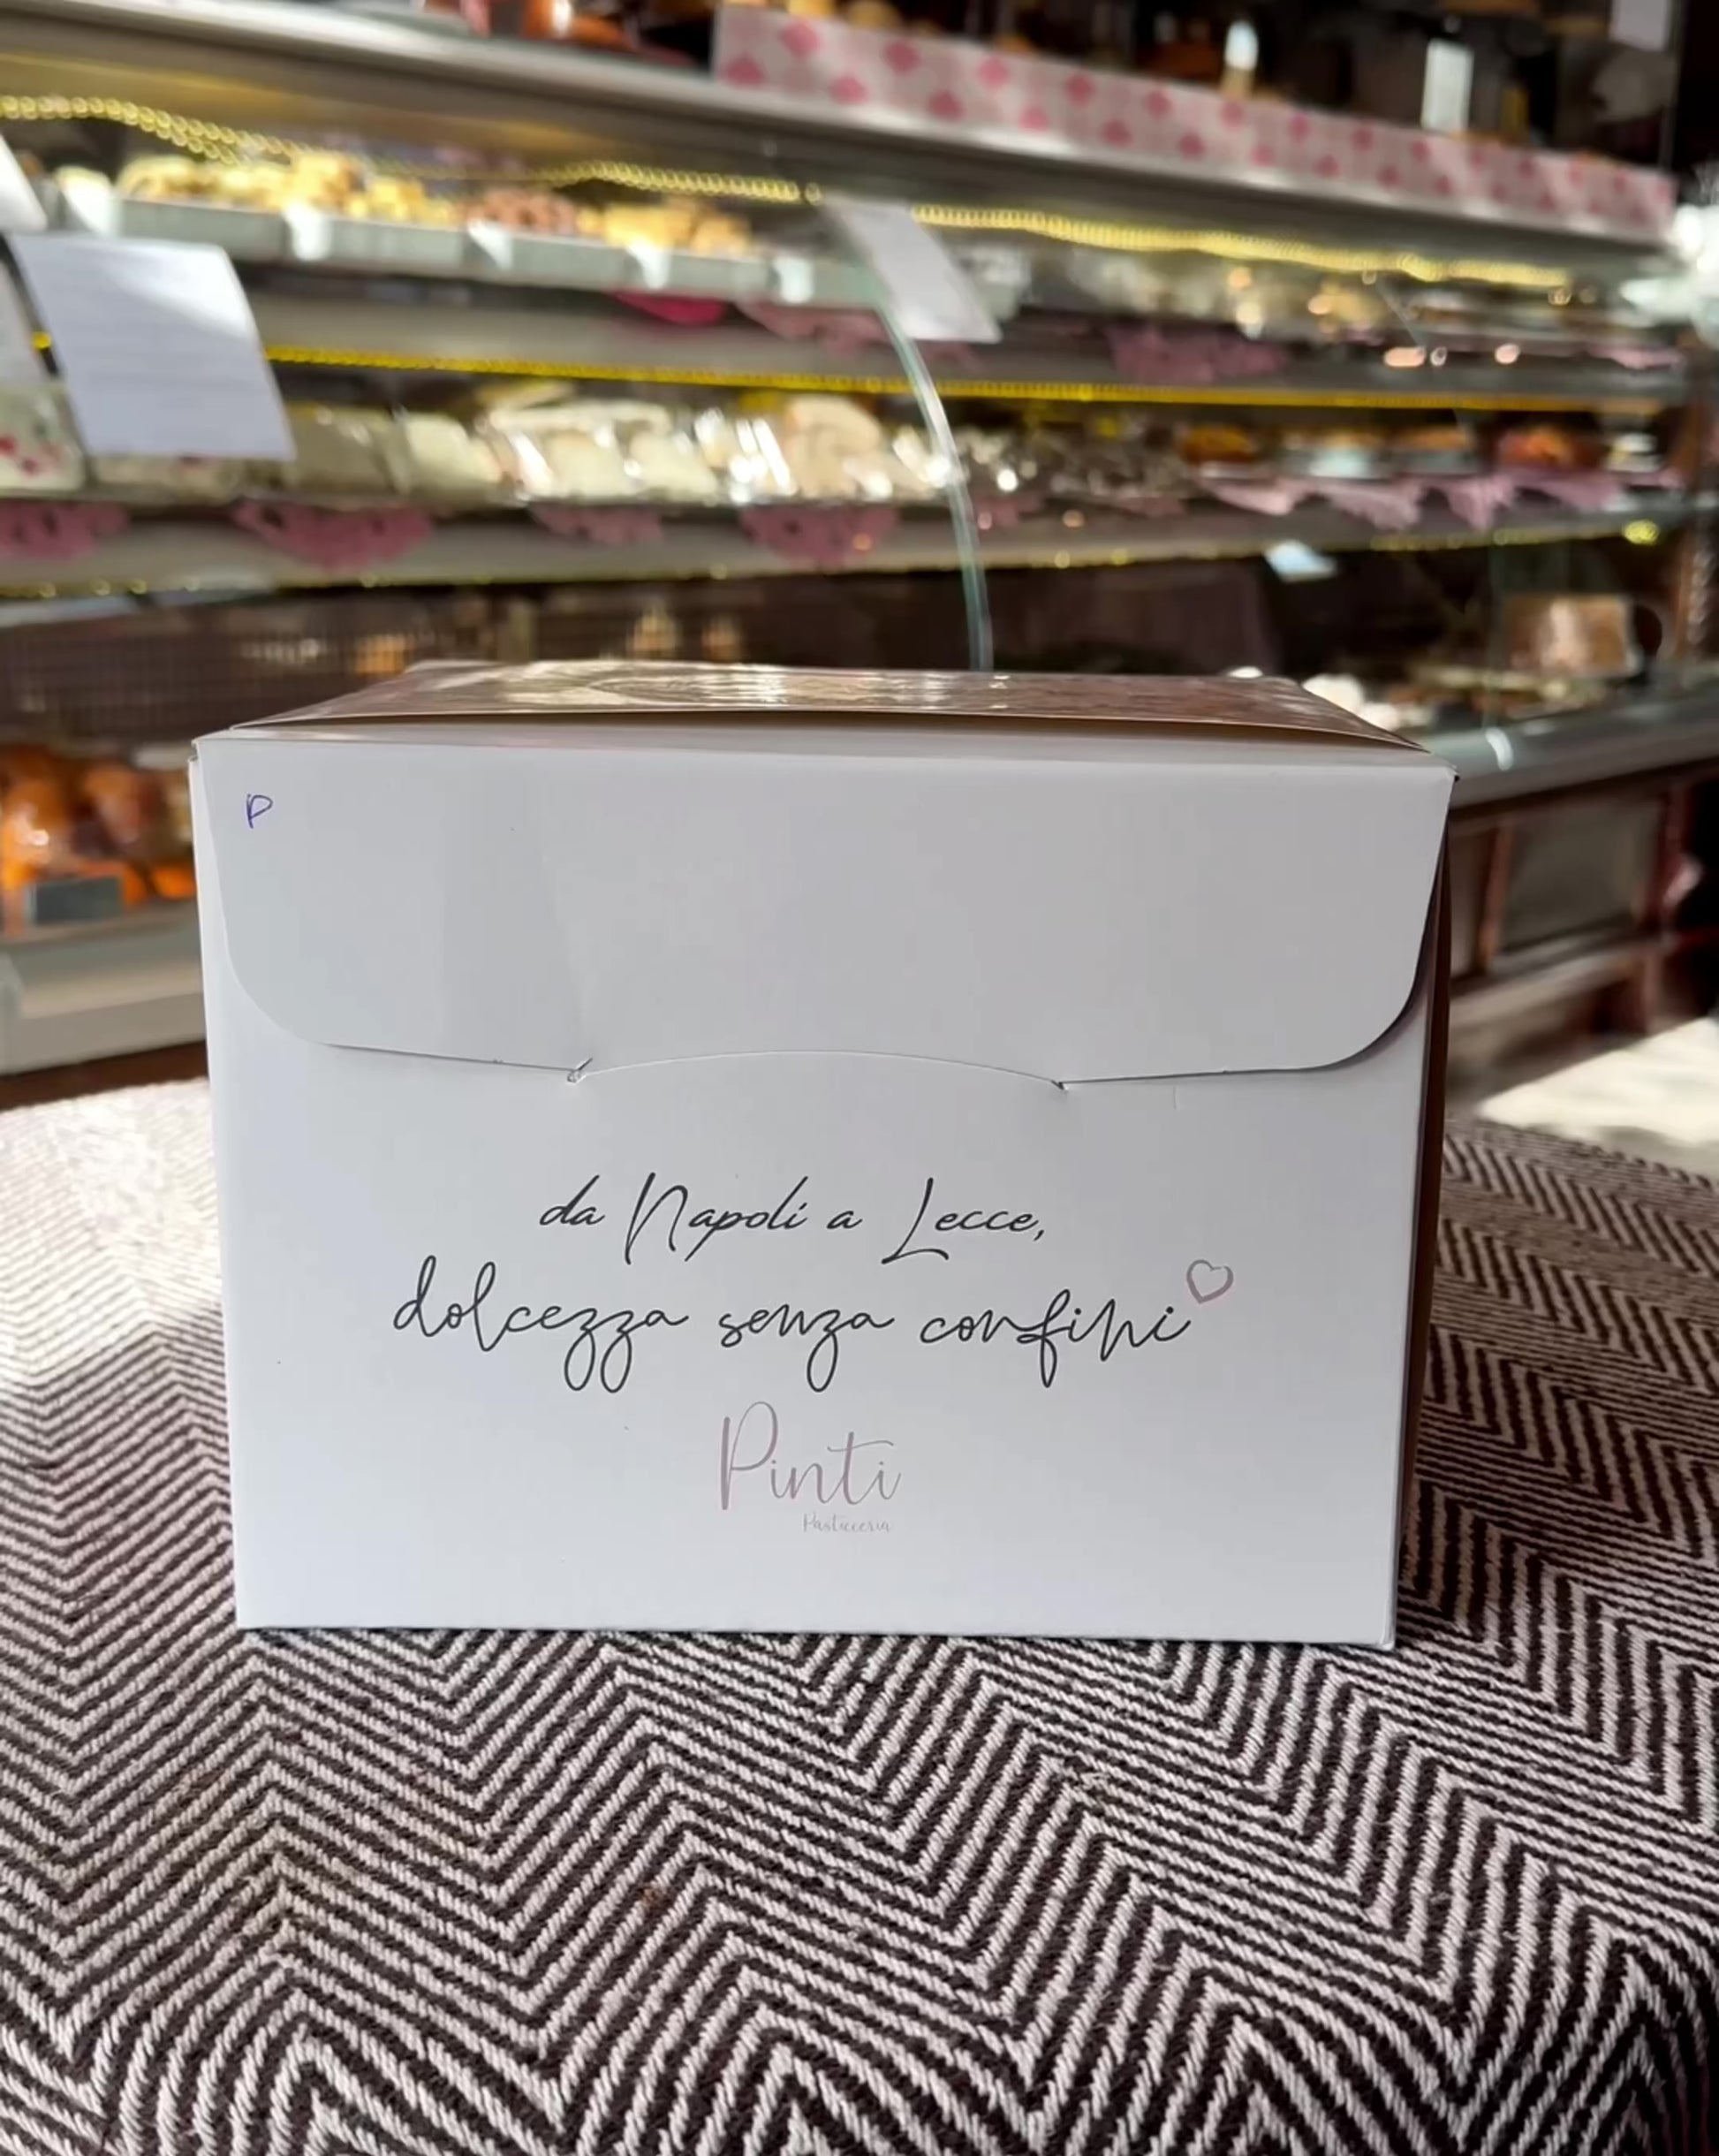 P
da Napoli a Lecce,
dolcezza senza confini
Pinti
Pasticceria